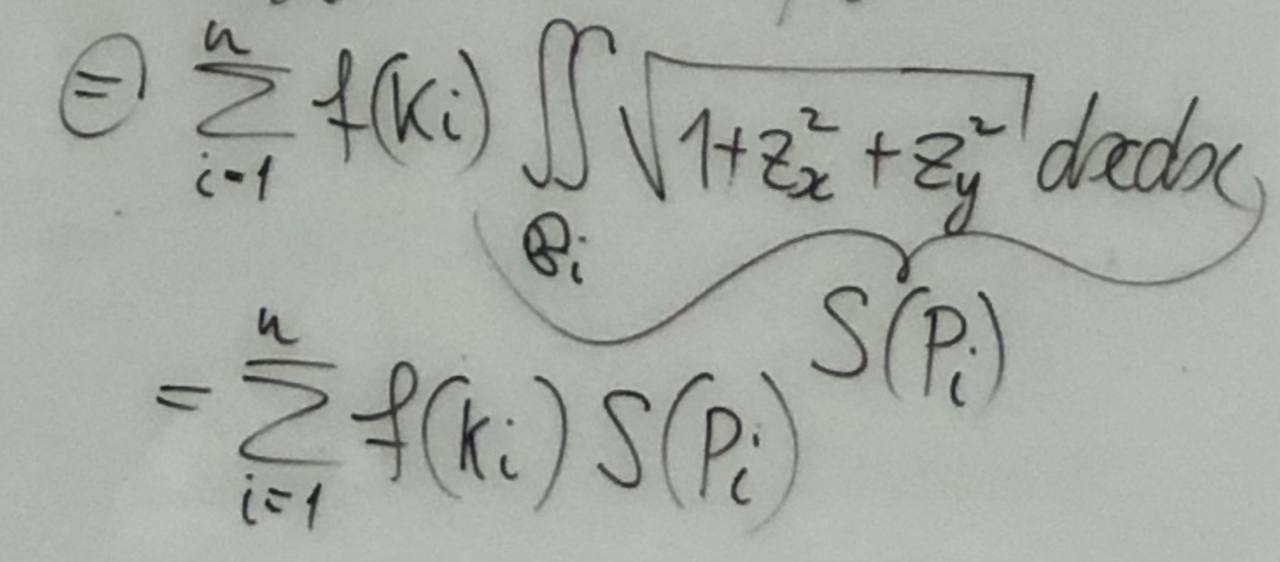 ⊜ \sum_{i=1}^{n} f(K_i) \iint_{P_i} \sqrt{1+z_x^2+z_y^2} dxdx
S(P_i)
= \sum_{i=1}^{n} f(K_i) S(P_i)